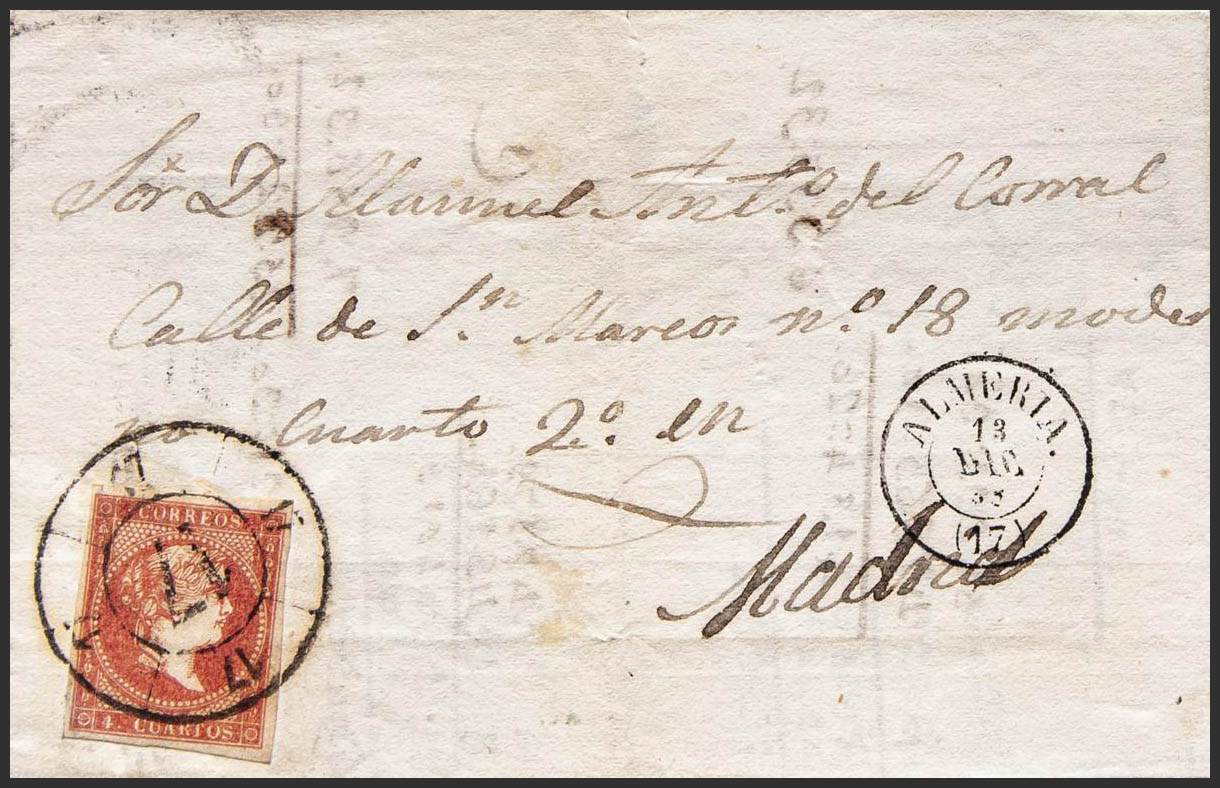 Sor D. Manuel Anto. del Corral
Calle de Sn. Marcos nº. 18 moder
no Cuarto 2º. en
Madrid
ALMERIA.
13
DIC.
(17)
CORREOS
17
4. CUARTOS